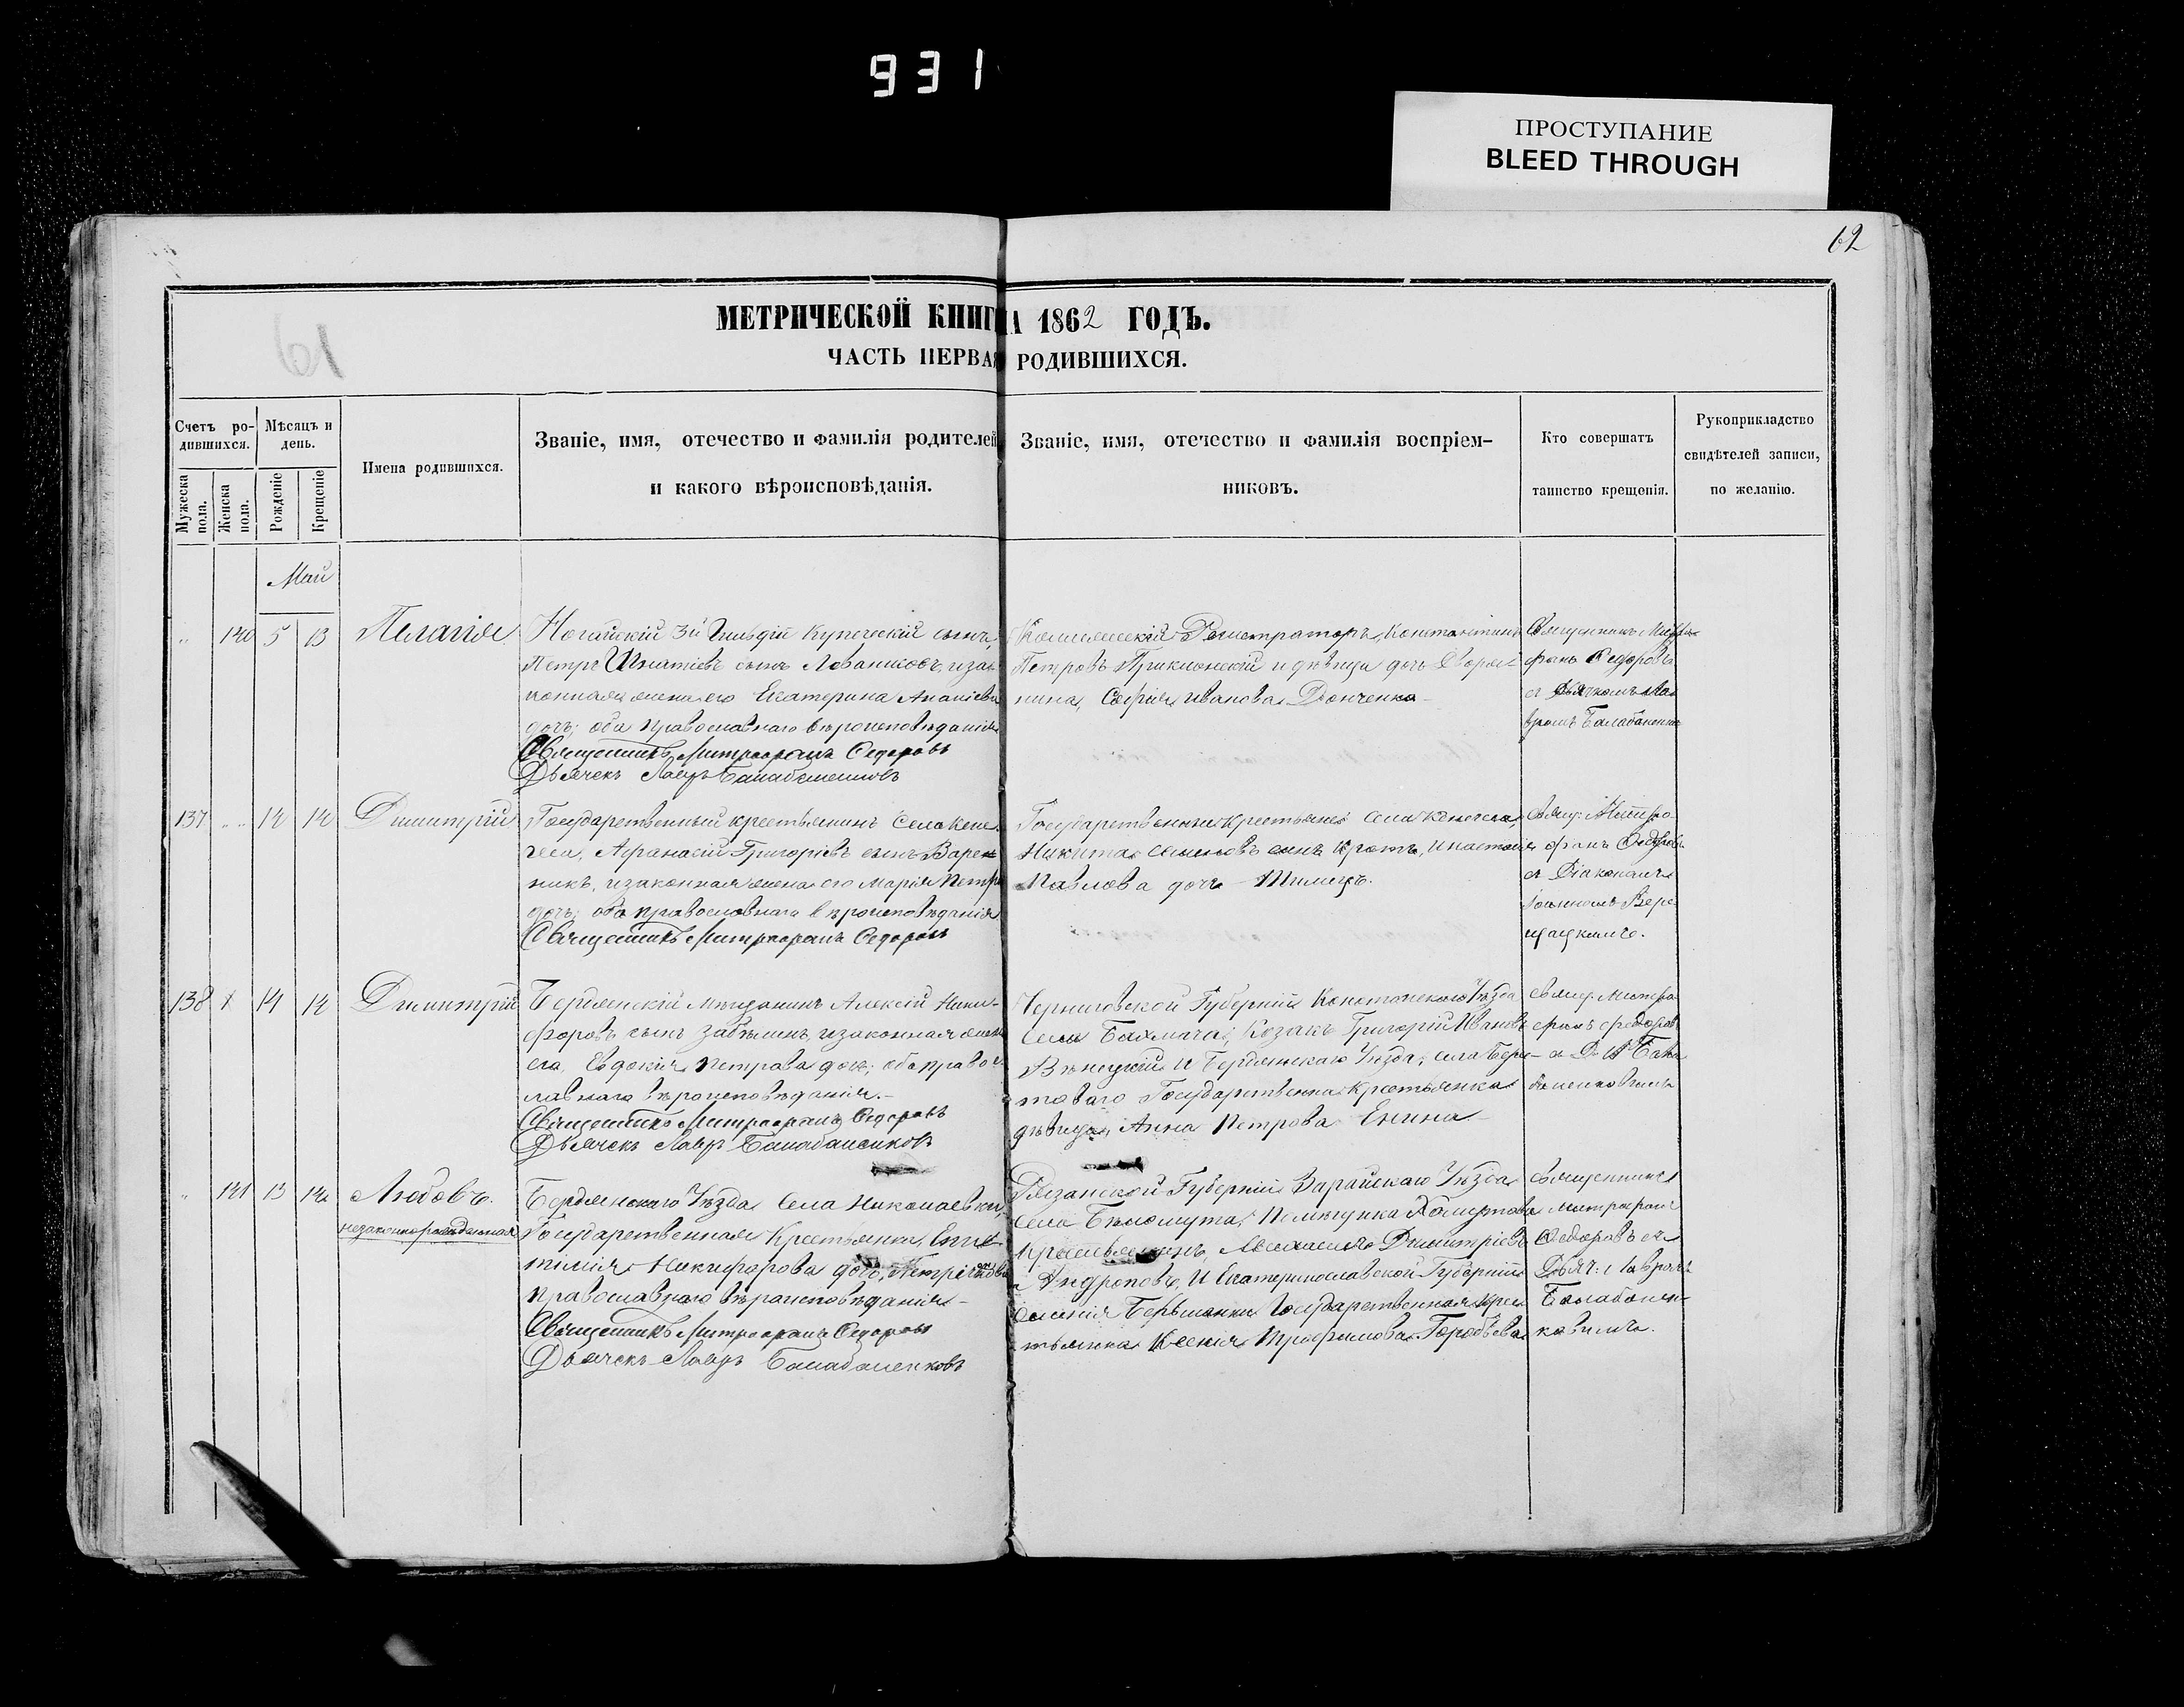 931
ПРОСТУПАНИЕ
BLEED THROUGH
62
61
МЕТРИЧЕСКОЙ КНИГ А 1862 ГОДЪ.
ЧАСТЬ ПЕРВАЯ РОДИВШИХСЯ.
Счетъ ро-
дившихся.
Мѣсяцъ и
день.
Мужеска
пола.
Женска
пола.
Рожденіе
Крещеніе
Имена родившихся.
Званіе, имя, отечество и фамилія родителей
и какого вѣроисповѣданія.
Званіе, имя, отечество и фамилія воспріем-
никовъ.
Кто совершатъ
таинство крещенія.
Рукоприкладство
свидѣтелей записи,
по желанію.
Май
140 5 13
Пелагія
Ногайскій 3й Гильдіи купеческій сынъ,
Петръ Игнатіевъ сынъ изак
конная жена его Екатерина Ананіева
дочь; оба православнаго вѣроисповѣданія
Священникъ Митрофанъ Федоровъ
Дьячекъ Лавръ Балабаненковъ
Регистраторъ, Константинъ
Петровъ Приклонскій и дѣвица дочь Дворя
нина, Софія Иванова Донченко
Священникъ Митро
фанъ Федоровъ
съ Дьячкомъ Ла
вромъ
137 14 14
Димитрій
Государственный крестьянинъ Села
Афанасій Григоріевъ сынъ Варен
никъ, и законная жена его Марія Петро
дочь; оба православнаго вѣроисповѣданія
Священникъ Митрофанъ Федоровъ
Государственные крестьяне Села
Никита сынъ Кротъ, и
Павлова дочь
Свящ: Митро
фанъ Федоровъ
съ Діакономъ
Вере
щацкимъ.
138 14 14
Димитрій
Бердянскій Мѣщанинъ Алексій Ники-
форовъ сынъ Забѣлинъ, и законная жена
его, Евдокія Петрова дочь; оба правос
лавнаго вѣроисповѣданія.
Священникъ Митрофанъ Федоровъ
Дьячекъ Лавръ Балабаненковъ
Черниговской Губерніи Конотопскаго Уѣзда
села Бахмача, Козакъ Григорій Ивановъ
и Бердянскаго Уѣзда, села Бере-
товаго Государственная крестьянка
дѣвица, Анна Петрова Енина
свящ: Митро
фанъ Федоровъ
141 13 14
Любовь.
незаконнорожденная
Бердянскаго Уѣзда Села Николаевки,
Государственная Крестьянка,
Никифорова дочь,
православнаго вѣроисповѣданія
Священникъ Митрофанъ Федоровъ
Дьячекъ Лавръ Балабаненковъ
Рязанской Губерніи Зарайскаго Уѣзда
села Бѣломута,
Крестьянинъ, Димитріевъ
Андроповъ, и Екатеринославской Губерніи
Государственная крес
тьянка Ксенія Трофимова
Священникъ
Митрофанъ
Федоровъ съ
Дьяч: Лавромъ
Балабанен-
ковымъ.